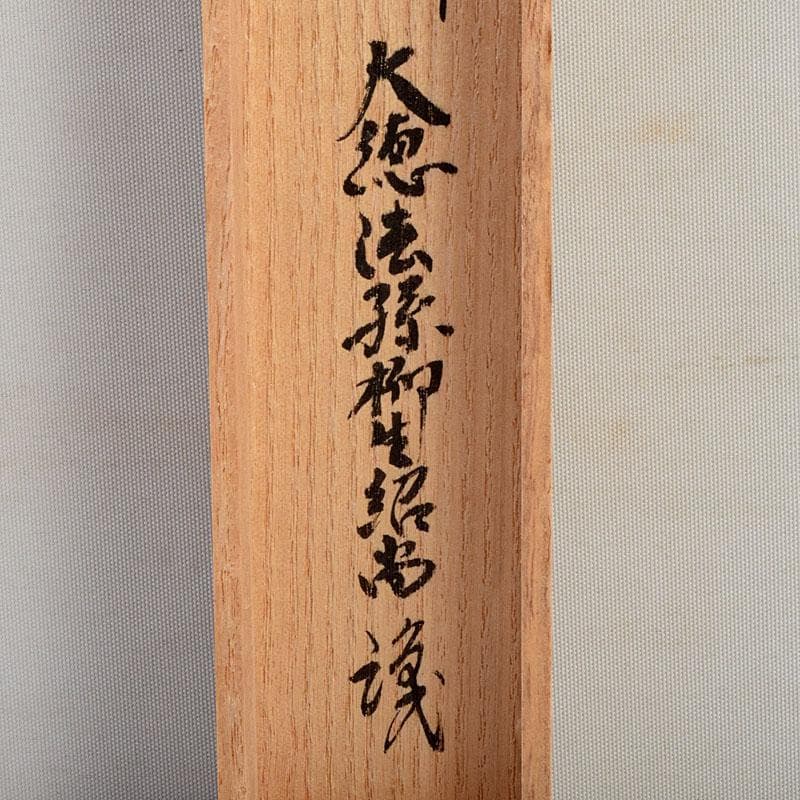 大徳法孫柳生紹尚識